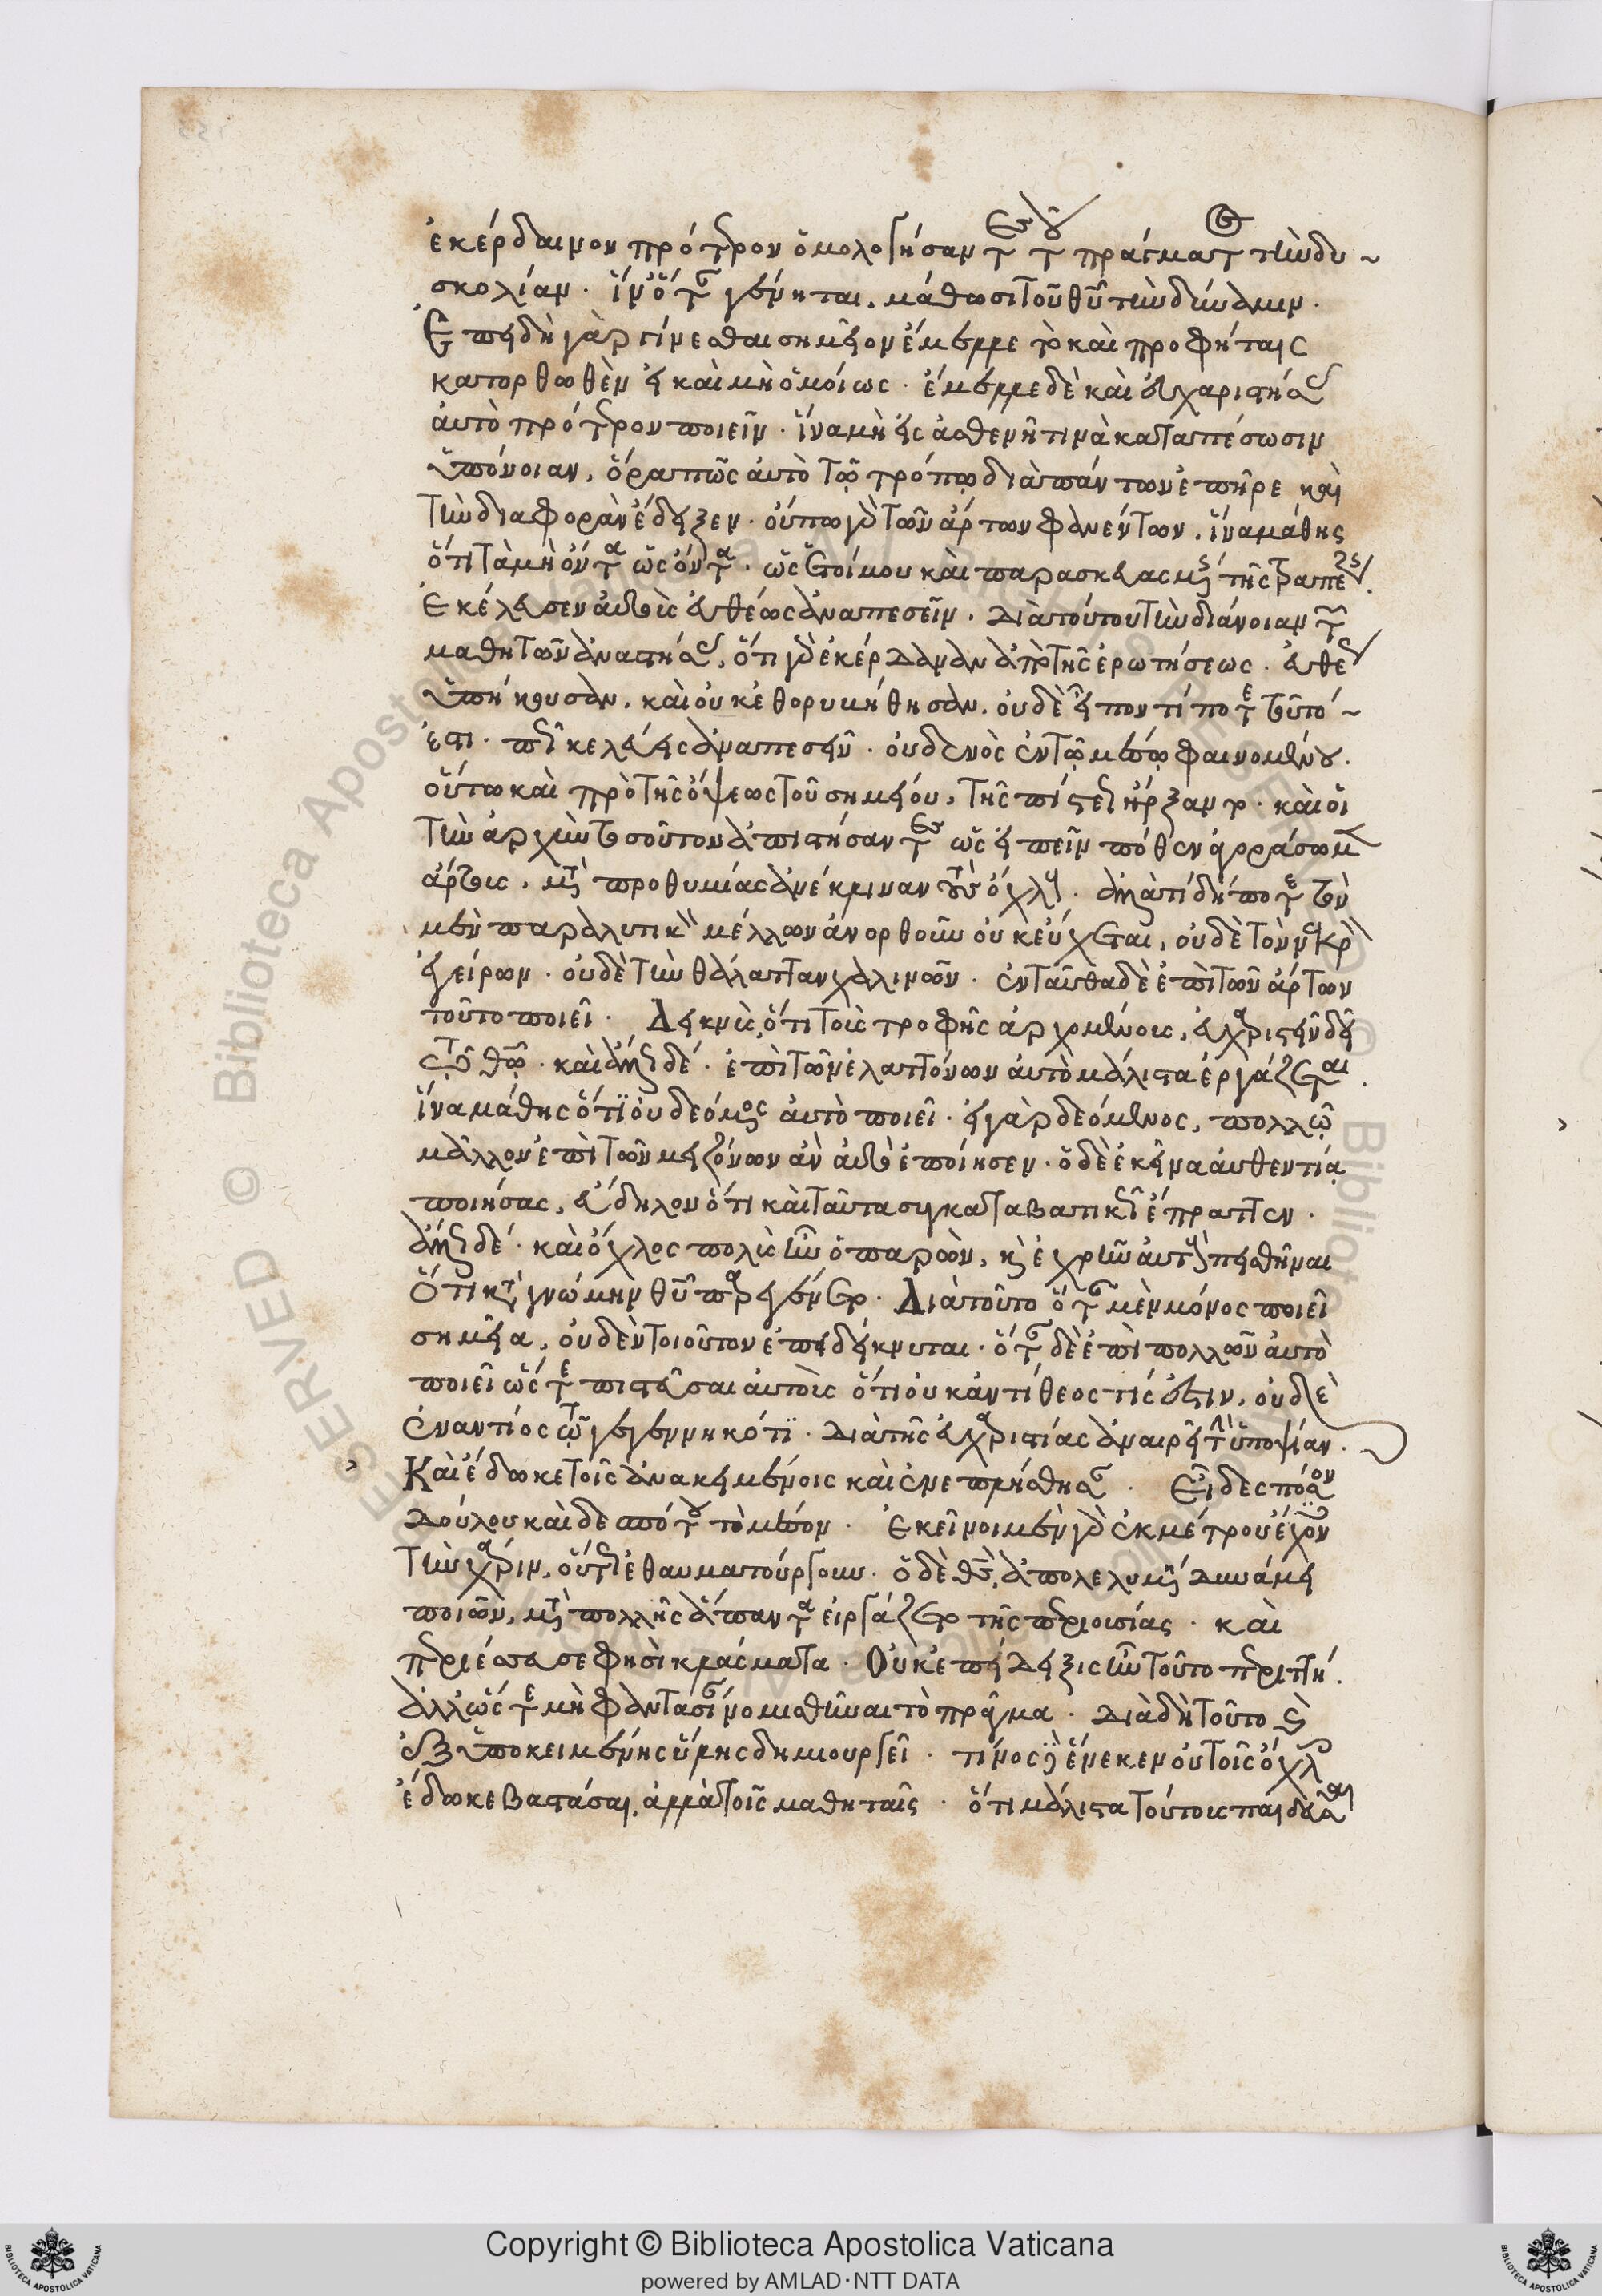 ἐκέρδαινον πρότερον ὁμολογήσαντες τοῦ πράγματος τὴν δυ~
σκολίαν. ἵν' ὅταν γένηται, μάθωσι τοῦ θῦ τὴν δύναμιν.
Ἐπειδὴ γὰρ γίνεσθαι σημεῖον ἔμελλε τὸ καὶ προφήταις
κατορθωθὲν εἰ καὶ μὴ ὁμοίως. ἔμελλε δὲ καὶ εὐχαριστήσας
αὐτὸ πρότερον ποιεῖν. ἵνα μὴ εἰς ἀσθενῆ τινὰ καταπέσωσιν
ὑπόνοιαν, ὅρα πῶς αὐτὸ τῷ τρόπῳ διὰ πάντων ἐπῆρε καὶ
τὴν διαφορὰν ἔδειξεν. οὔπω γὰρ τῶν ἄρτων φανέντων, ἵνα μάθῃς
ὅτι τὰ μὴ ὄντα ὡς ὄντα. ὡς ἑτοίμου καὶ παρασκευασμένης τῆς τραπέζης.
Ἐκέλευσεν αὐτοῖς εὐθέως ἀναπεσεῖν. Διὰ τούτου τὴν διάνοιαν τῶν
μαθητῶν ἀναστήσας, ὅτι γὰρ ἐκέρδαναν ἀπὸ τῆς ἐρωτήσεως. εὐθέως
ὑπήκουσαν, καὶ οὐκ ἐθορυβήθησαν. οὐδὲ εἶπον τί ποτε τοῦτό ~
ἐστι. πῶς κελεύεις ἀναπεσεῖν. οὐδενὸς ἐν τῷ μέσῳ φαινομένου.
οὕτω καὶ πρὸ τῆς ὄψεως τοῦ σημείου, τῆς πίστεως ἤρξαντο. καὶ οἱ
τὴν ἀρχὴν τοσοῦτον ἀπιστήσαντες ὡς εἰπεῖν πόθεν ἀγοράσωμεν
ἄρτους, μετὰ προθυμίας ἀνέκλιναν τοὺς ὄχλους. ἀλλὰ τί δήποτε τὸν
μὲν παραλυτικὸν μέλλων ἀνορθοῦν οὐκ εὔχεται, οὐδὲ τὸν νεκρὸν
ἐγείρων. οὐδὲ τὴν θάλατταν χαλινῶν. ἐνταῦθα δὲ ἐπὶ τῶν ἄρτων
τοῦτο ποιεῖ. Δεικνὺς ὅτι τοῖς τροφῆς ἀρχομένοις, εὐχαριστεῖν δεῖ
τῷ θῷ. καὶ ἄλλως δέ. ἐπὶ τῶν ἐλαττόνων αὐτὸ μάλιστα ἐργάζεται.
ἵνα μάθῃς ὅτι οὐ δεόμενος αὐτὸ ποιεῖ. εἰ γὰρ δεόμενος, πολλῷ
μᾶλλον ἐπὶ τῶν μειζόνων ἂν αὐτὸ ἐποίησεν. ὁ δὲ ἐκεῖνα αὐθεντίᾳ
ποιήσας, εὔδηλον ὅτι καὶ ταῦτα συγκαταβατικῶς ἔπραττεν.
ἄλλως δέ. καὶ ὄχλος πολὺς ἦν ὁ παρών, καὶ ἐχρῆν αὐτοὺς πεισθῆναι
Ὅτι κατὰ γνώμην θῦ παρεγένετο. Διὰ τοῦτο ὅταν μὲν μόνος ποιεῖ
σημεῖα, οὐδὲν τοιοῦτον ἐπιδείκνυται. ὅταν δὲ ἐπὶ πολλῶν αὐτὸ
ποιεῖ ὥστε πιστεῦσαι αὐτοὺς ὅτι οὐκ ἀντίθεός τίς ἐστιν, οὐδὲ
ἐναντίος τῷ γεγεννηκότι. Διὰ τῆς εὐχαριστίας ἀναιρεῖ τὴν ὑποψίαν.
Καὶ ἔδωκε τοῖς ἀνακειμένοις καὶ ἐνεπλήσθησαν. Εἶδες πόσον
Δούλου καὶ δεσπότου τὸ μέσον. Ἐκεῖνοι μὲν γὰρ ἐκ μέτρου ἔχοντες
τὴν χάριν, οὕτως ἐθαυματούργουν. ὁ δὲ θς, ἀπολελυμένῃ δυνάμει
ποιῶν, μετὰ πολλῆς ἅπαντα εἰργάζετο τῆς περιουσίας. καὶ
περιέσσευσέ φησι κλάσματα. Οὐκ ἐπίδειξις ἦν τοῦτο περιττή.
ἀλλ' ὥστε μὴ φαντασίαν νομισθῆναι τὸ πρᾶγμα. Διὰ δὴ τοῦτο καὶ
ἐξ ὑποκειμένης ὕλης δημιουργεῖ. τίνος δὲ ἕνεκεν οὐ τοῖς ὄχλοις
ἔδωκε βαστάσαι, ἀλλὰ τοῖς μαθηταῖς. ὅτι μάλιστα τούτους παιδεῦσαι